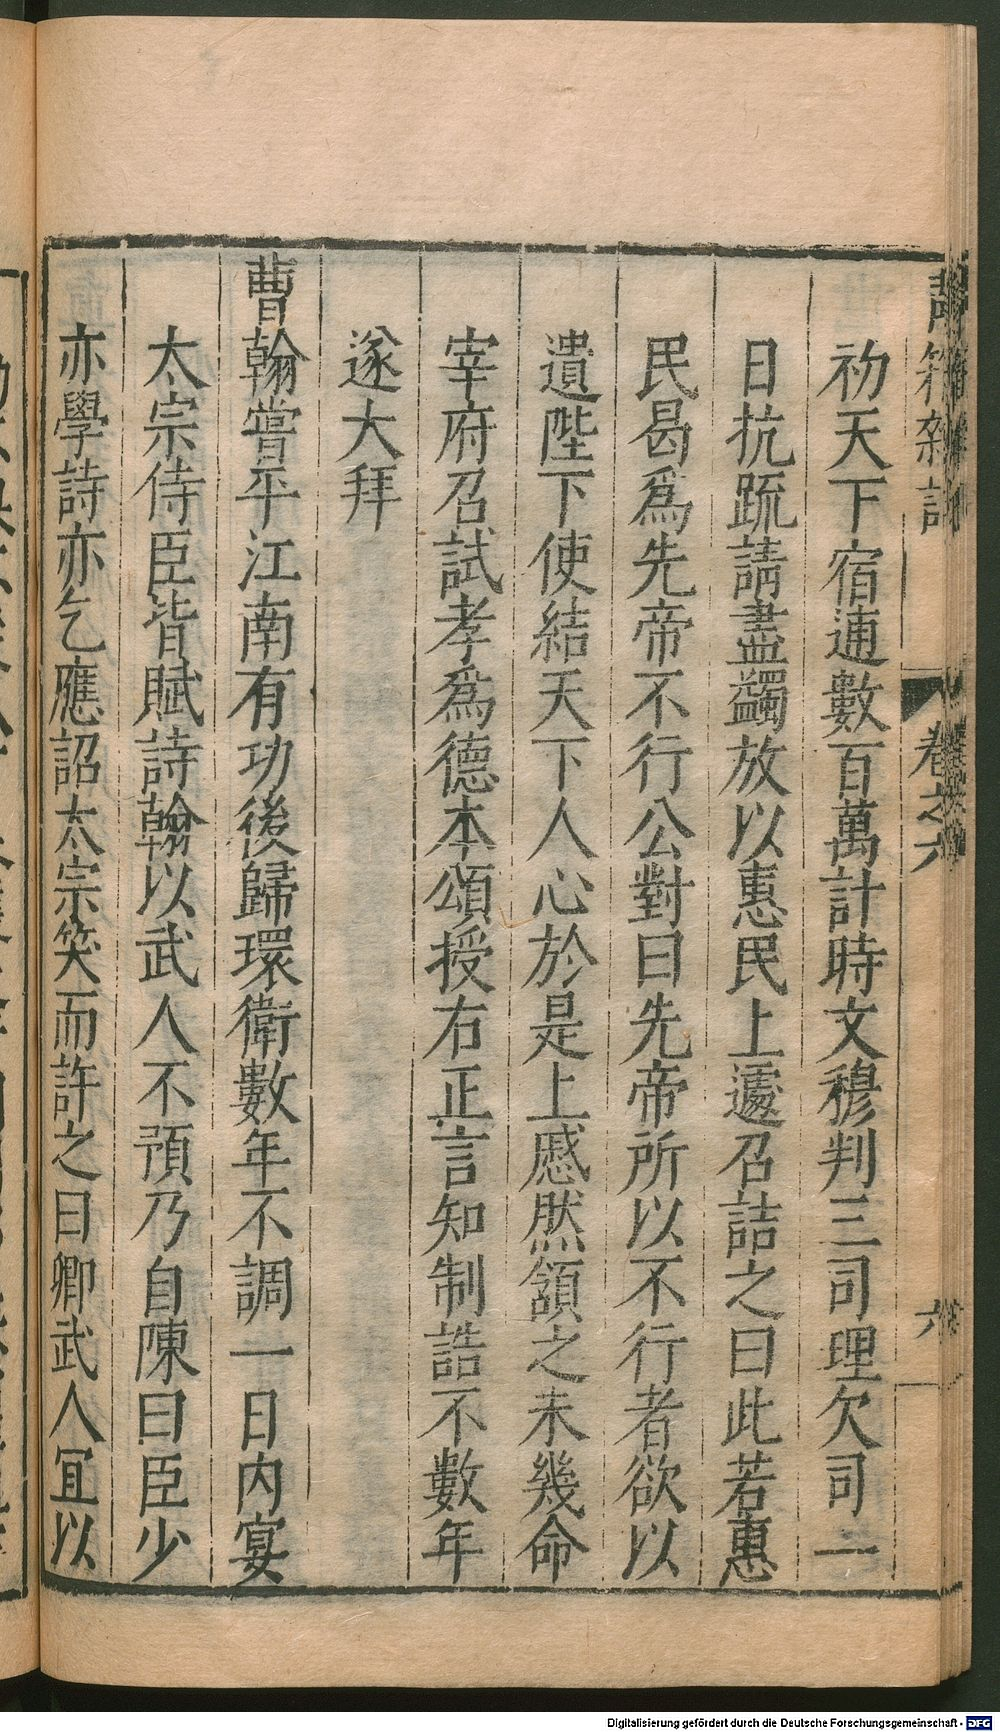 初天下宿逋數百萬計時文穆判三司理欠司一
日抗疏請盡蠲放以惠民上遽召詰之曰此若惠
民曷爲先帝不行公對曰先帝所以不行者欲以
遺陛下使結天下人心於是上慼然頷之未幾命
宰府召試孝爲德本頌授右正言知制誥不數年
遂大拜
曹翰嘗平江南有功後歸環衛數年不調一日內宴
太宗侍臣皆賦詩翰以武人不預乃自陳曰臣少
亦學詩亦乞應詔太宗笑而許之曰卿武人宜以
卷之六
六
Digitalisierung gefördert durch die Deutsche Forschungsgemeinschaft - DFG